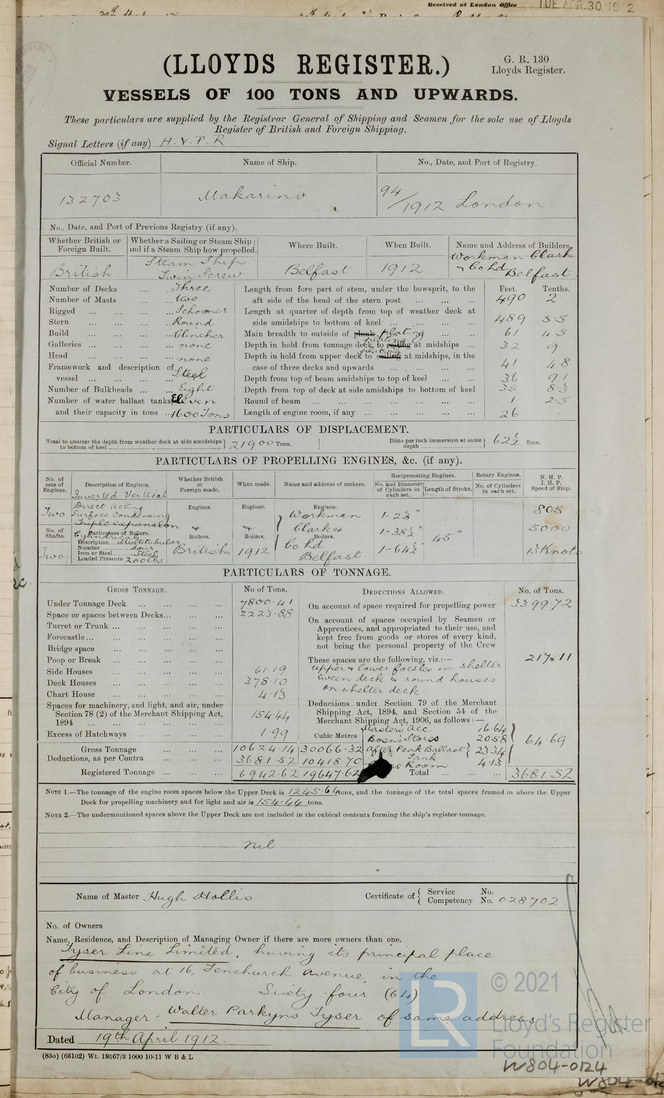 Received at London Office TUE APR 30 1912
(LLOYDS REGISTER.)
G. R. 130
Lloyds Register.
VESSELS OF 100 TONS AND UPWARDS.
These particulars are supplied by the Registrar General of Shipping and Seamen for the sole use of Lloyds
Register of British and Foreign Shipping.
Signal Letters (if any) H.V.P.R
Official Number. Name of Ship. No., Date, and Port of Registry.
132703 Makarini 94/1912 London
No., Date, and Port of Previous Registry (if any).
Whether British or Foreign Built. Whether a Sailing or Steam Ship; and if a Steam Ship how propelled. Where Built. When Built. Name and Address of Builders.
British Steam Ship Twin Screw Belfast 1912 Workman Clark & Co Ld Belfast
Number of Decks ... Three
Number of Masts ... two
Rigged ... Schooner
Stern ... Round
Build ... Clincher
Galleries ... none
Head ... none
Framework and description of vessel ... Steel
Number of Bulkheads ... Eight
Number of water ballast tanks Eleven
and their capacity in tons ... 1600 Tons
Feet. Tenths.
Length from fore part of stem, under the bowsprit, to the
aft side of the head of the stern post ... 490 2
Length at quarter of depth from top of weather deck at
side amidships to bottom of keel ... 489 55
Main breadth to outside of plank plating ... 61 45
Depth in hold from tonnage deck to ceiling plating at midships ... 32 9
Depth in hold from upper deck to ceiling plating at midships, in the
case of three decks and upwards ... 41 48
Depth from top of beam amidships to top of keel ... 36 91
Depth from top of deck at side amidships to bottom of keel
Round of beam ... 1 25
Length of engine room, if any ... 26
PARTICULARS OF DISPLACEMENT.
Total to quarter the depth from weather deck at side amidships to bottom of keel ... 21900 Tons.
Ditto per inch immersion at same depth ... 62½ Tons.
PARTICULARS OF PROPELLING ENGINES, &c. (if any).
No. of sets of Engines. Description of Engines. Whether British or Foreign made. When made. Name and address of makers. Reciprocating Engines. Rotary Engines. N. H. P. I. H. P. Speed of Ship.
No. and Diameter of Cylinders in each set. Length of Stroke. No. of Cylinders in each set.
Two Inverted Vertical Direct Acting Surface Condensing Triple Expansion
Engines. Engines. Engines.
No. of Shafts. Particulars of Boilers. Boilers. Boilers. Boilers.
Two Description Multitubular
Number Four
Iron or Steel Steel
Loaded Pressure 200 lbs
British & 1912 Workman Clark & Co Ld Belfast
1-23½" 1-38½" 1-64½" 45" 808 5000 13 Knots
PARTICULARS OF TONNAGE.
GROSS TONNAGE. No. of Tons.
Under Tonnage Deck ... 7800.41
Space or spaces between Decks ... 2223.88
Turret or Trunk ...
Forecastle ...
Bridge space ...
Poop or Break ...
Side Houses ... 61.19
Deck Houses ... 378.10
Chart House ... 4.13
Spaces for machinery, and light, and air, under
Section 78 (2) of the Merchant Shipping Act,
1894 ... 154.44
Excess of Hatchways ... 1.99
Cubic Metres
Gross Tonnage 10624.14 30066.32
Deductions, as per Contra ... 3681.52 10418.70
Registered Tonnage ... 6942.62 19647.62
DEDUCTIONS ALLOWED. No. of Tons.
On account of space required for propelling power 3399.72
On account of spaces occupied by Seamen or
Apprentices, and appropriated to their use, and
kept free from goods or stores of every kind,
not being the personal property of the Crew
These spaces are the following, viz.:— 217.11
Upper & lower focsles in shelter
tween deck & round houses
on shelter deck
Deductions under Section 79 of the Merchant
Shipping Act, 1894, and Section 54 of the
Merchant Shipping Act, 1906, as follows:—
Master's Acc. 16.64
Bosn's Stores 20.58
After Peak Ballast Tank 23.34
Room 4.13
64.69
Total ... 3681.52
NOTE 1.—The tonnage of the engine room spaces below the Upper Deck is 1245.61 tons, and the tonnage of the total spaces framed in above the Upper
Deck for propelling machinery and for light and air is 154.44 tons.
NOTE 2.—The undermentioned spaces above the Upper Deck are not included in the cubical contents forming the ship's register tonnage.
nil
Name of Master Hugh Hollis
Certificate of { Service No. Competency No. 028702
No. of Owners
Name, Residence, and Description of Managing Owner if there are more owners than one.
Tyser Line Limited, having its principal place
of business at 16, Fenchurch Avenue, in the
City of London Sixty four (64)
Manager - Walter Parkyns Tyser of same address.
Dated 19th April 1912.
(83o) (68102) Wt. 19567/3 1000 10-11 W B & L
LR
© 2021
Lloyd's Register
Foundation
W804-0124